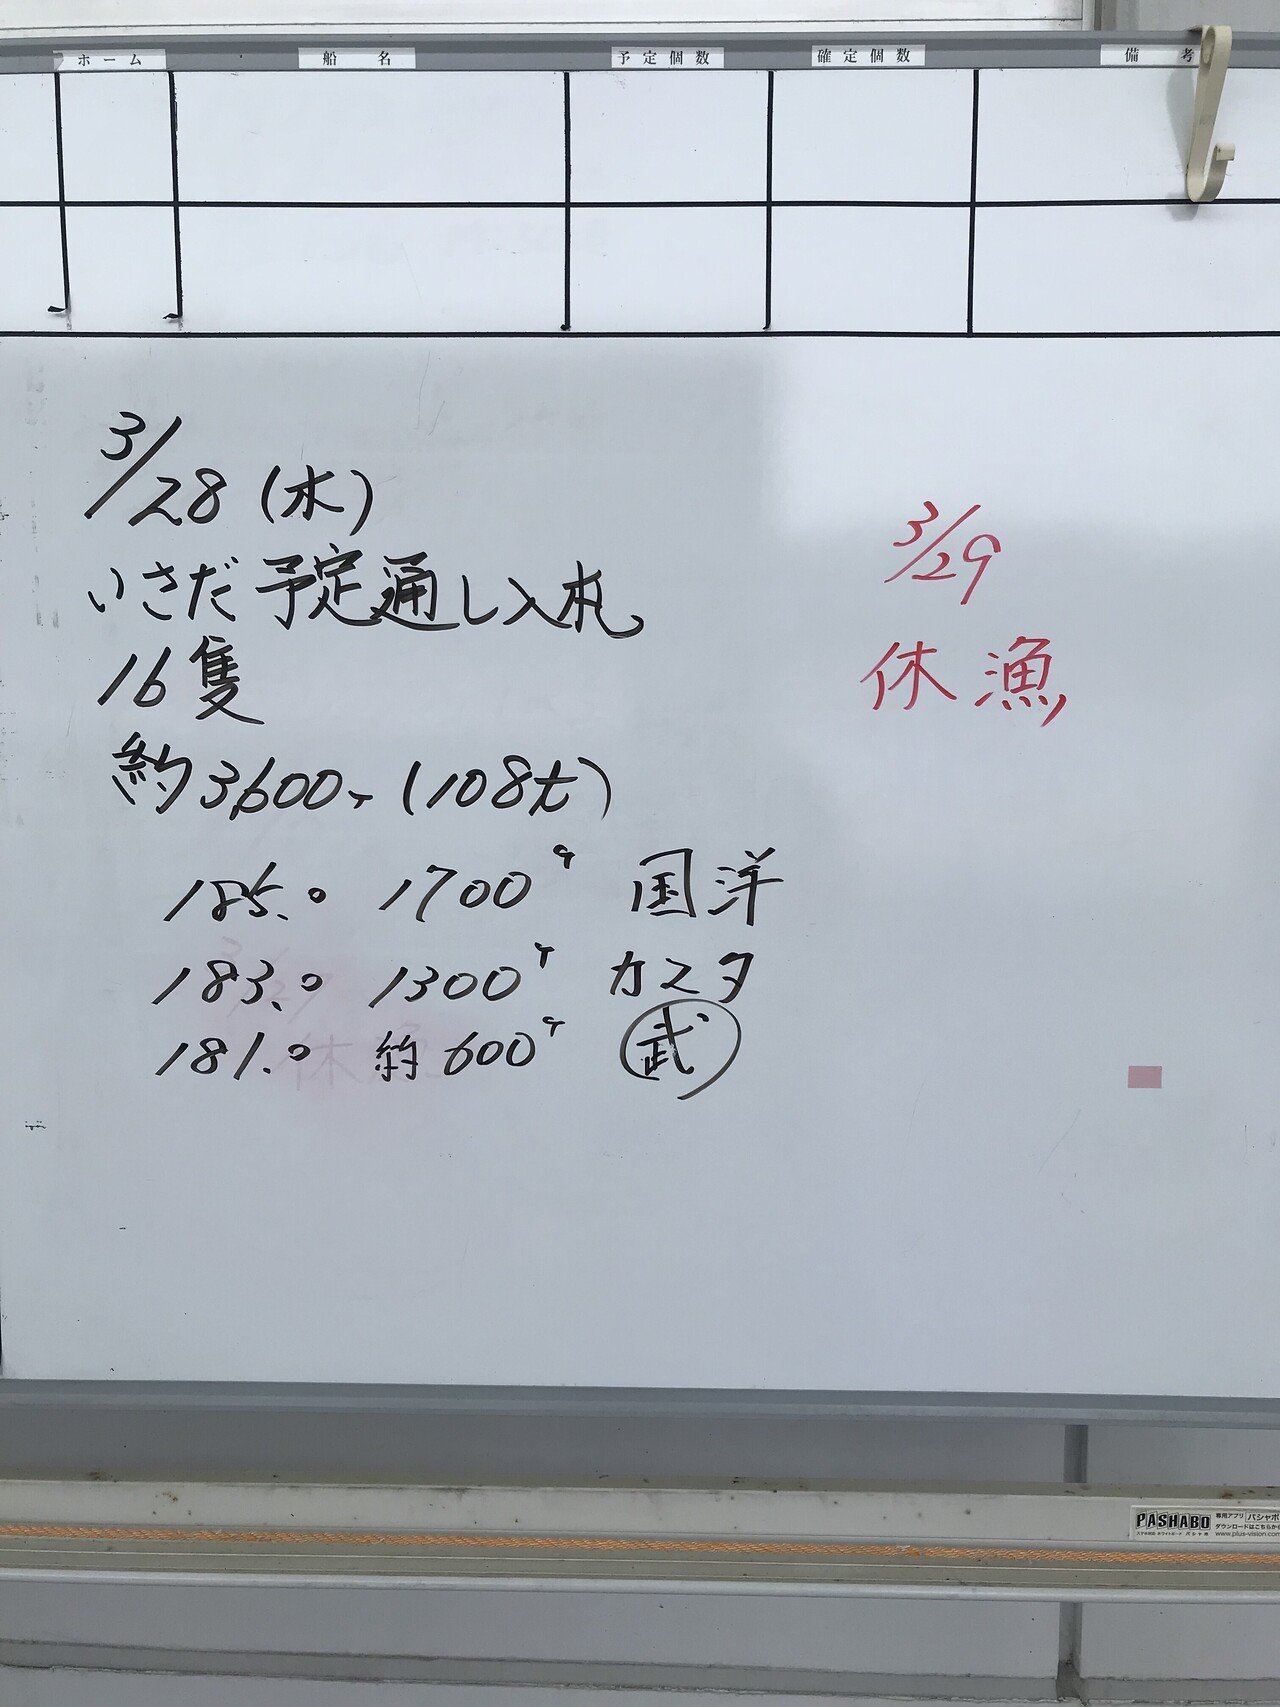 ホーム 船名 予定個数 確定個数 備考
3/28 (水)
いさだ 予定通し入札
16隻
約3600ヶ (108t)
185.0 1700ヶ 国洋
183.0 1300ヶ カネタ
181.0 約600ヶ 武
3/29
休漁
PASHABO
専用アプリ パシャボ
ダウンロードはこちらから
www.plus-vision.com